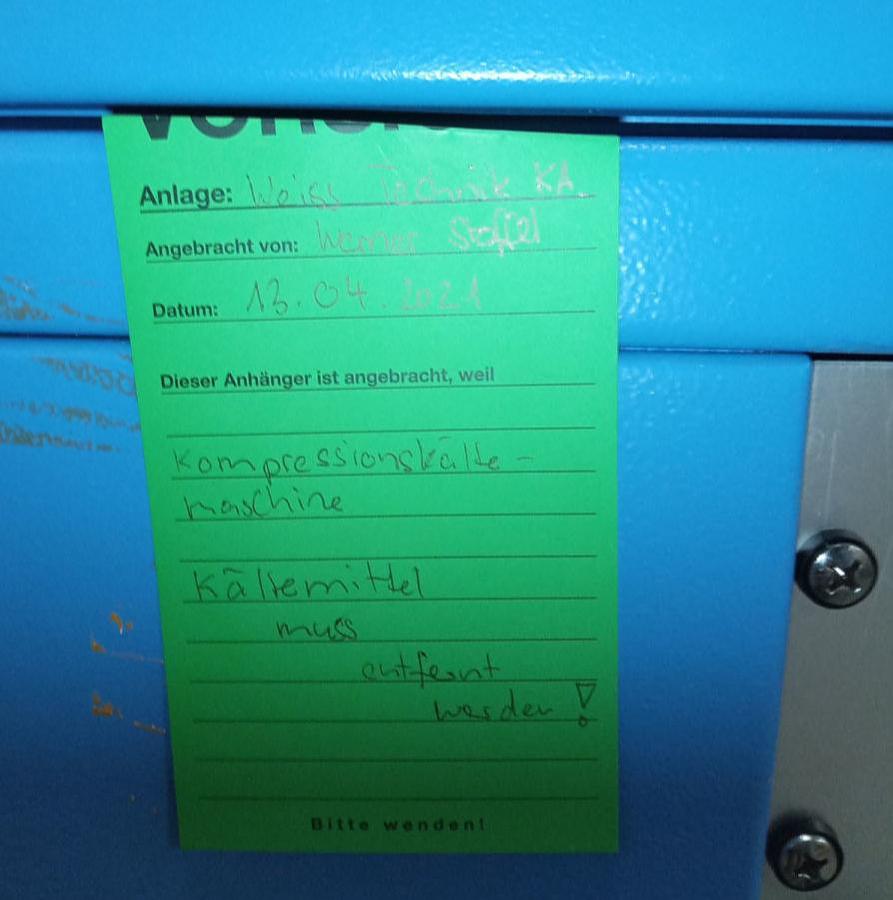 Anlage: Weiss Technik KA.
Angebracht von: Werner Stoffel
Datum: 13.04.2021
Dieser Anhänger ist angebracht, weil
Kompressionskälte-
maschine
Kältemittel
muss
entfernt
werden!
Bitte wenden!